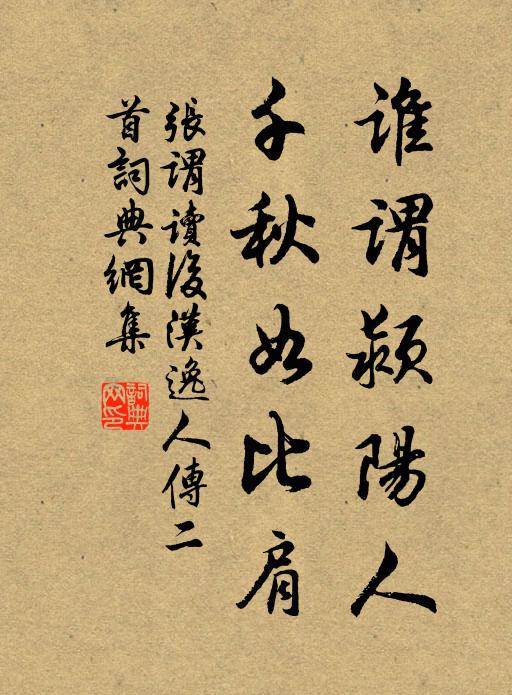 誰謂潁陽人
千秋如比肩
張謂讀後漢逸人傳二
首詞典網集
詞典網印